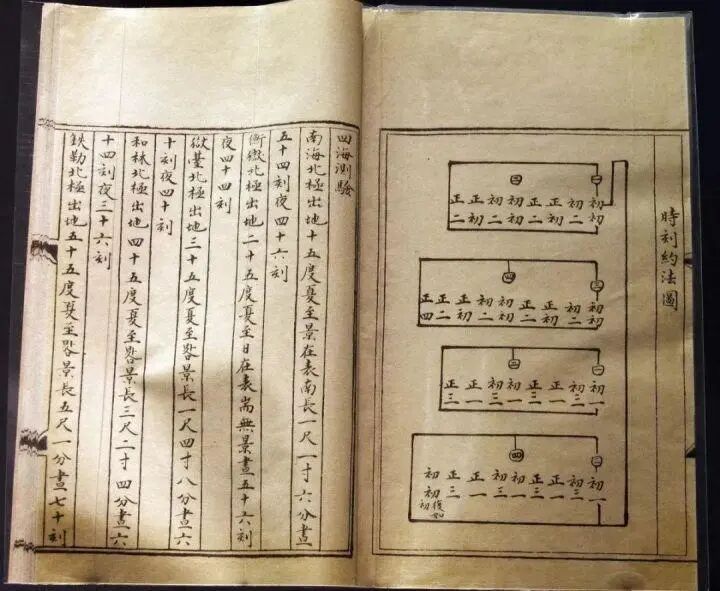 時刻約法圖
一
三
初初
初二
正初
正二
初初
初二
正初
正二
三
四
初初
初二
正初
正二
初初
初二
一
二
初一
初三
正一
正三
初一
初三
正一
正三
二
四
初一
初三
正一
正三
初一
初三
正一
正三
初初
復如初
四海測驗
南海北極出地十五度夏至景在表南長一尺一寸六分晝
五十四刻夜四十六刻
衡嶽北極出地二十五度夏至日在表耑無景晝五十六刻
夜四十四刻
嶽臺北極出地三十五度夏至晷景長一尺四寸八分晝六
十刻夜四十刻
和林北極出地四十五度夏至晷景長三尺二寸四分晝六
十四刻夜三十六刻
鐵勒北極出地五十五度夏至晷景長五尺一分晝七十刻